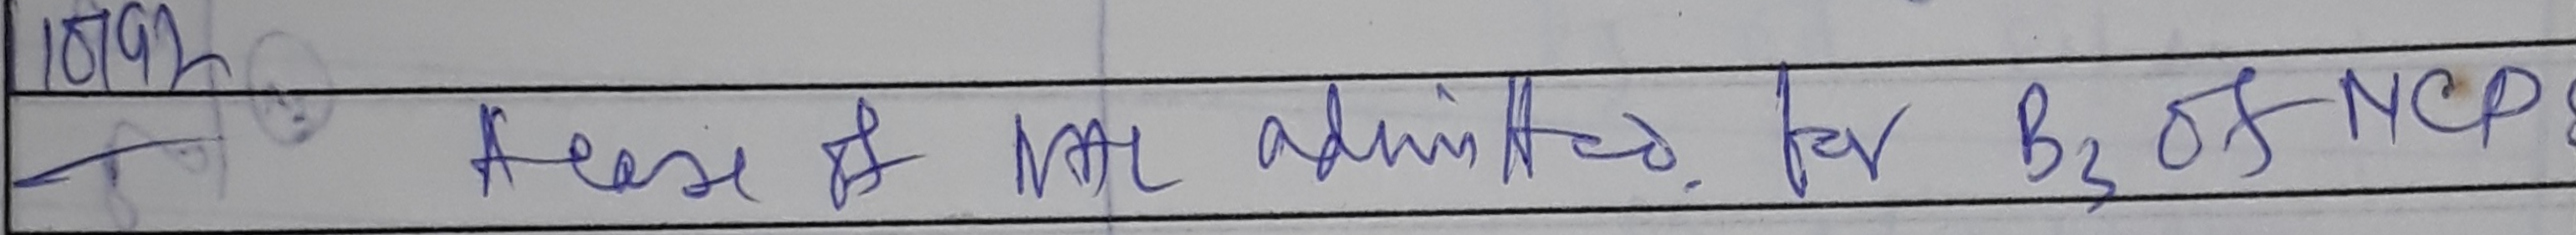 A case of NHL admitted. for B3 of NCP